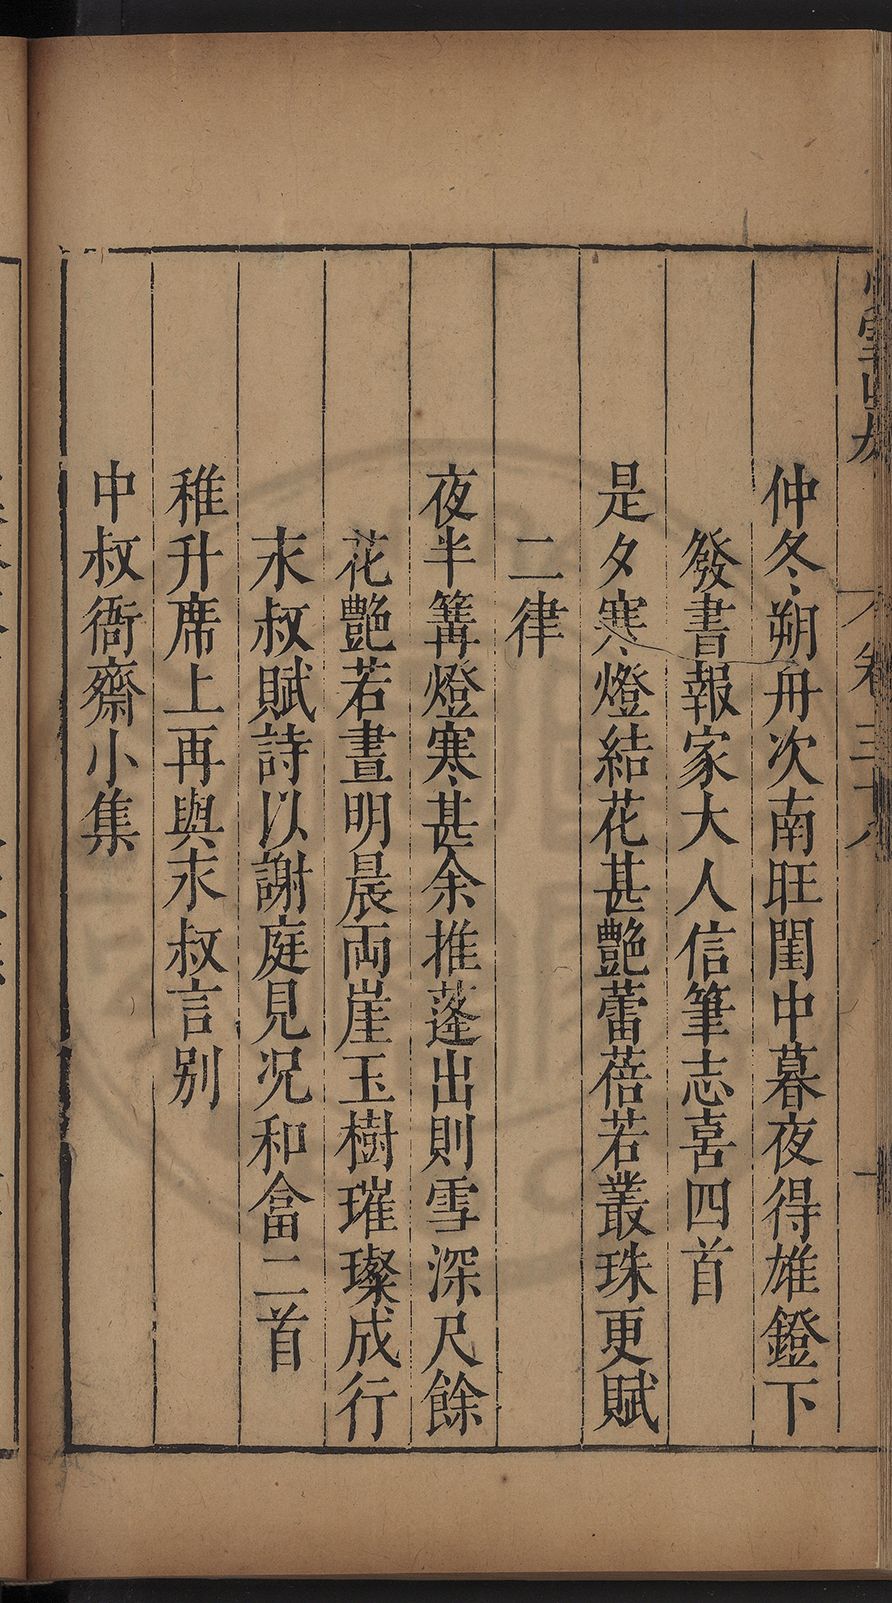 卷三十八
仲冬朔舟次南旺閨中暮夜得雄鐙下
發書報家大人信筆志喜四首
是夕寒燈結花甚艷蕾蓓若叢珠更賦
二律
夜半篝燈寒甚余推蓬出則雪深尺餘
花艷若晝明晨兩崖玉樹璀璨成行
末叔賦詩以謝庭見况和畣二首
稚升席上再與末叔言别
中叔衙齋小集